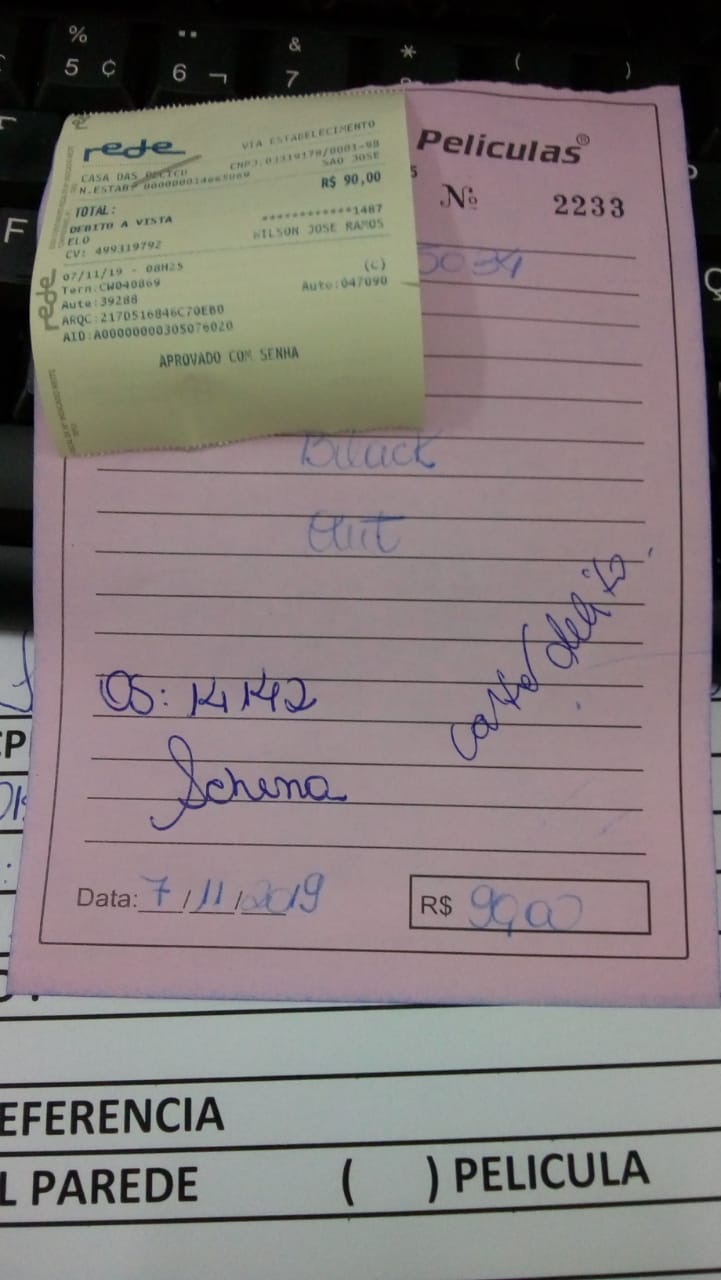 % ¨ & * ( )
5 ¢ 6 ¬ 7
F
Ç
rede
VIA ESTABELECIMENTO
CASA DAS
CNPJ.03319178/0001-98
N.ESTAB. 000000014665069
SAO JOSE
R$ 90,00
TOTAL:
DEBITO A VISTA
ELO
************1487
CV: 499319792
WILSON JOSE RAMOS
07/11/19 - 08H25
(C)
Term:CW040869
Auto:047090
Aute:39288
ARQC:2170516846C70EB0
AID:A0000000305076020
APROVADO COM SENHA
rede
Películas®
Nº 2233
5034
Black
Out
OS: 14142
Schena
Data: 7/11/2019
R$ 90,00
EFERENCIA
L PAREDE ( ) PELICULA